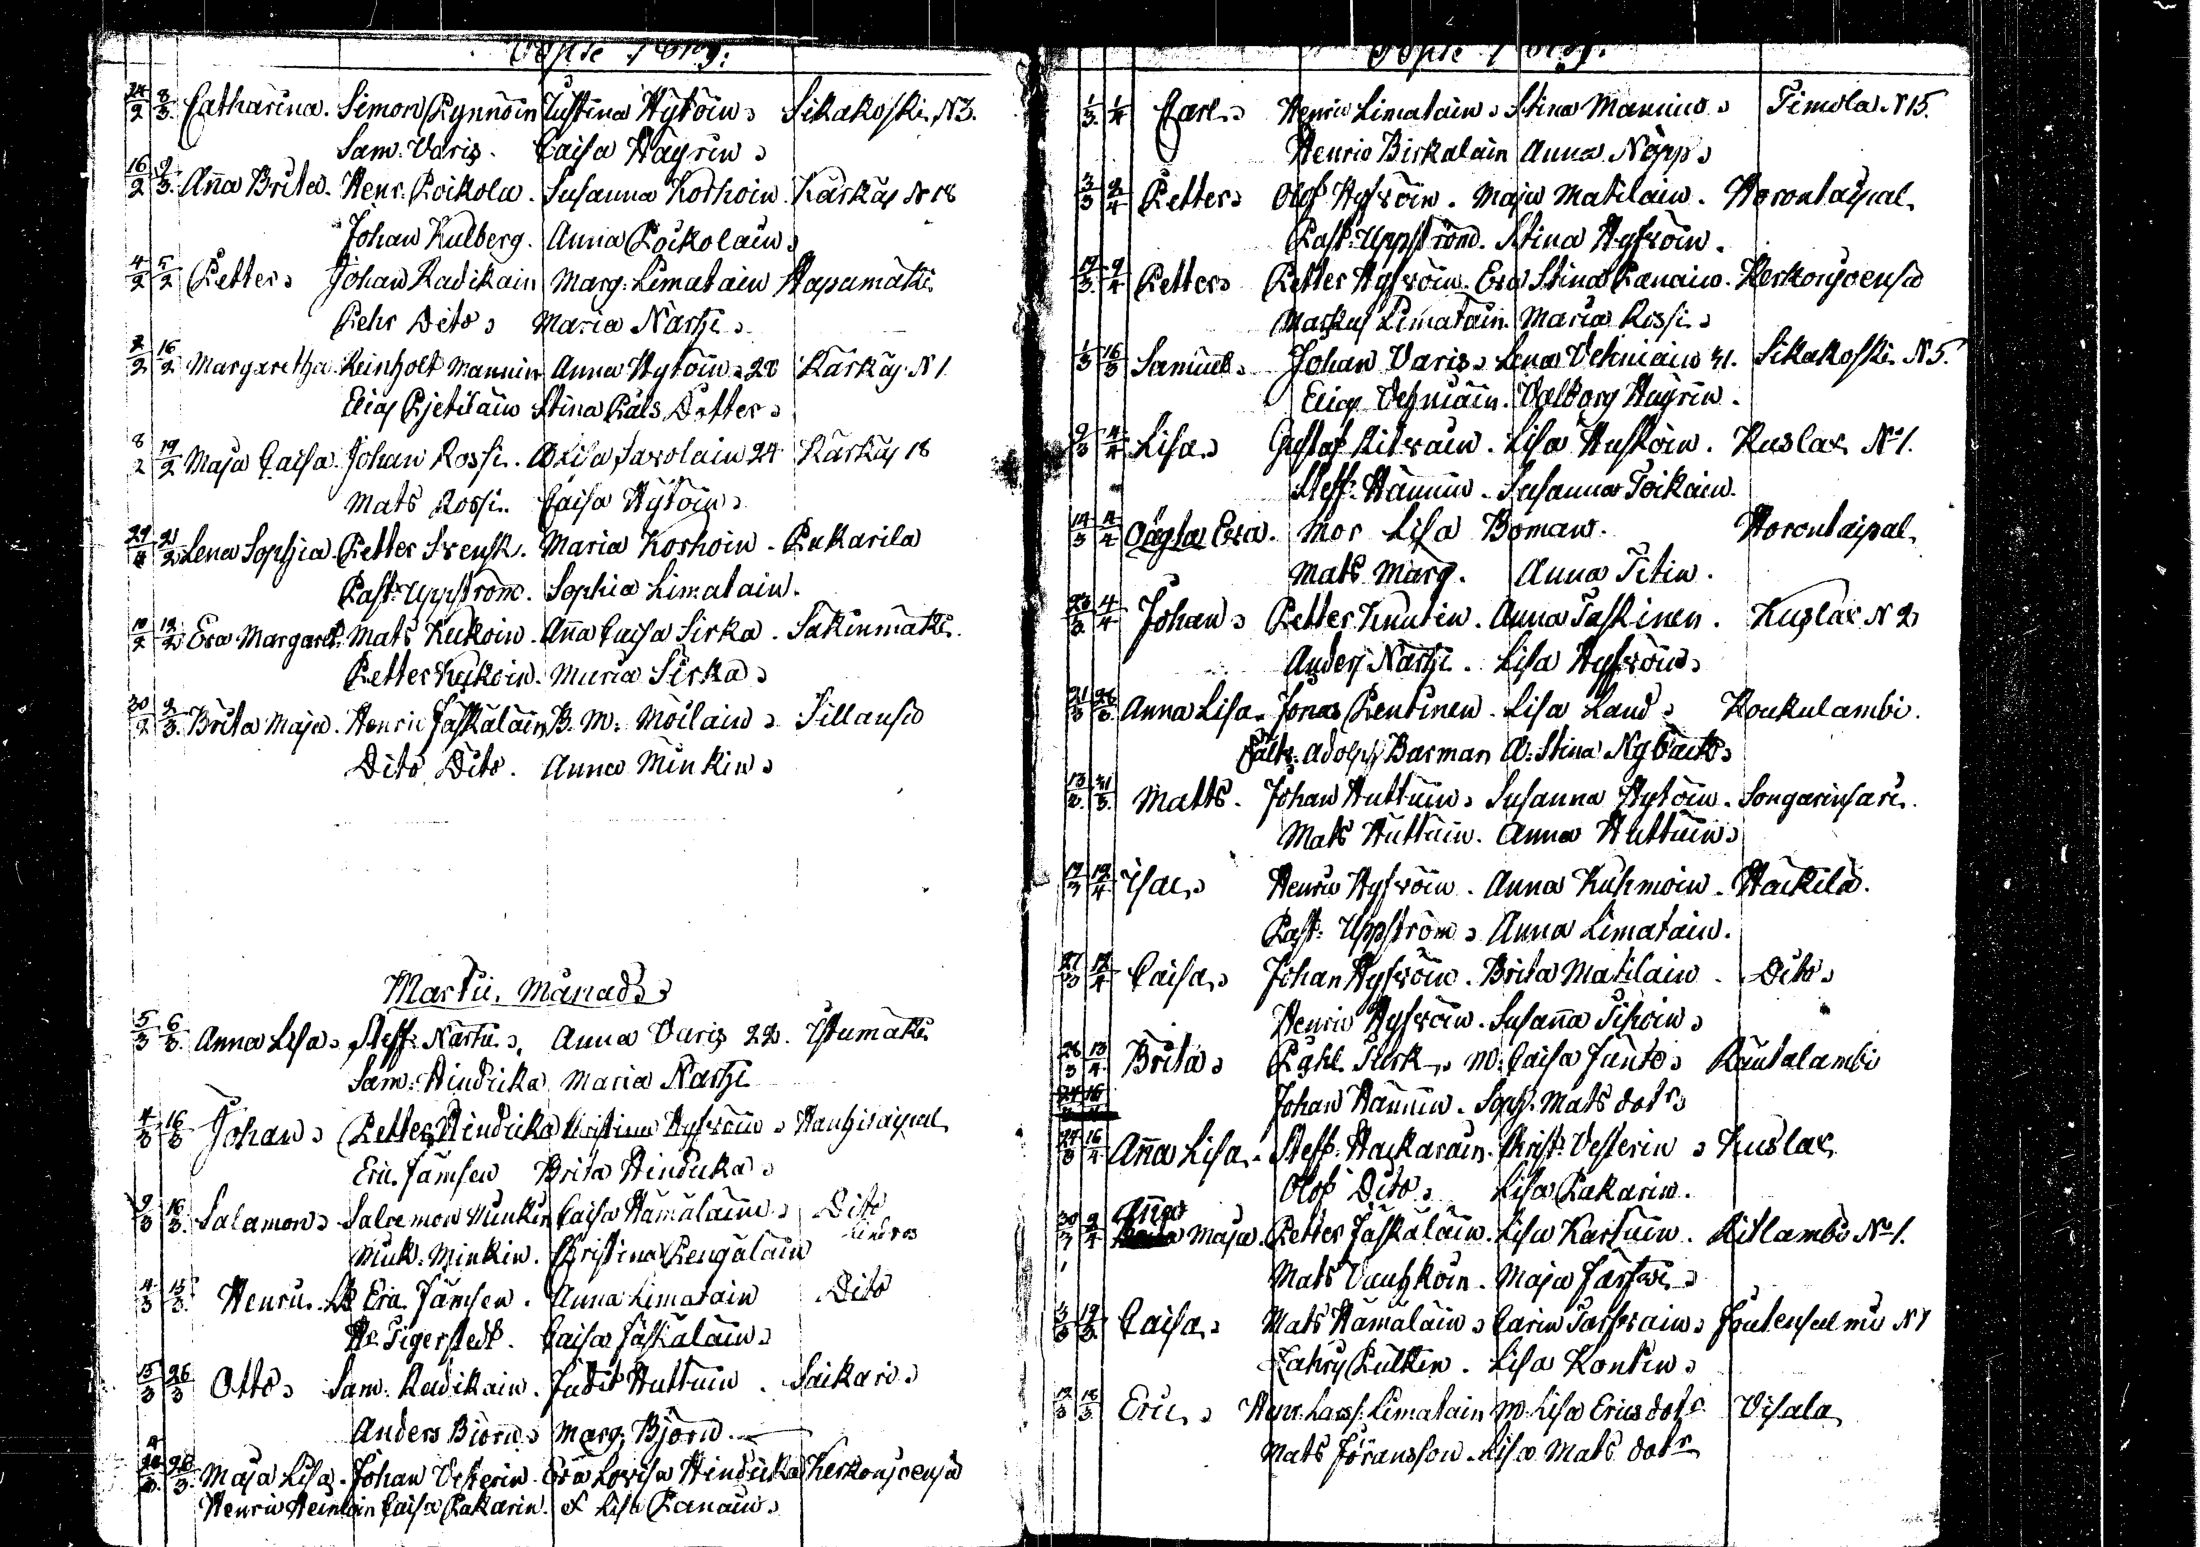 24/2 8/3 Catharina. Simon Pynnöin Justina Hytöin Sikakoski N3.
Sam. Varis. Caisa Häyrin
16/2 9/3 Anna Brita. Henr. Poikola. Susanna Korhoin. Kärkäs N 18
Johan Kulberg. Anna Poikolain
4/2 5/2 Petter Johan Radikain Marg: Limatain Hapamäki
Pehr Dito Maria Närhi
2/2 16/2 Margaretha Reinholt Mannin Anna Hytöin 28 Kärkäs N 1
Elias Pjetiläin Stina Påls Dotter
8/2 19/2 Maja Caisa. Johan Rossi. A Lisa Savolain 24 Kärkäs 18
Mats Rossi. Caisa Hytöin
21/2 Lena Sophia. Petter Svensk. Maria Korhoin. Pukarila
Past: Uppström. Sophia Limatain.
10/2 12/2 Eva Margaret. Mats Kukoin. Anna Caisa Sirka. Säkinmäki.
Petter Kukoin. Maria Sirka
30/2 9/3 Brita Maja. Henric Jäskäläin B. M. Moilain Sillansu
Dito Dito. Anna Minkin
Martii Månad
5/3 6/3 Anna Lisa Steff: Närhi Anna Varis 22. Istumäki
Sam: Hindrika Maria Närhi
4/3 16/3 Johan Petter Hindrika Christina Hyfvöin Hanhitaipal
Eric Jämsen Brita Hindrika
9/3 16/3 Salamon Salamon Minkin Caisa Hämäläin Dito
Mick. Minkin. Christina Rengälain
4/3 13/3 Henric. Eric Jämsen. Anna Limatain Dito
Hr Tigerstedt. Caisa Jäskäläin
15/3 26/3 Otto Sam. Radikain. Judit Huttuin. Saikari
Anders Biörn Marg: Björn
28/3 Maja Lisa. Johan Vesterin. Eva Lovisa Hindrika Kerkonjoensu
Henric Heinoin Caisa Pakarin. & Lisa Panain
1/3 1/4 Carl Henric Limatain Stina Mannin Timola N 15.
Henric Birkalain Anna Nopp
3/3 2/4 Petter Olof Hyfvöin. Maja Matilain. Horontaipal
Past: Uppström. Stina Hyfvöin.
19/3 9/4 Petter Petter Hyfvöin. Eva Stina Panain. Kerkonjoensu
Markus Limatain. Maria Rossi
1/3 16/3 Samuel Johan Varis Lena Vehniäin 41. Sikakoski N 5.
Elias Vehniäin. Valborg Häyrin.
9/3 4/4 Lisa Gustaf Ritvain. Lisa Huskoin. Kuslax No 1.
Steff. Hännin. Susanna Toikain.
14/3 4/4 Oägta Eva. Mor Lisa Boman. Horontaipal
Mats Marg. Anna Titin.
20/3 4/4 Johan Petter Knutin. Anna Taskinen. Kuslax N 2
Anders Närhi. Lisa Hyfvöin
21/3 26/3 Anna Lisa. Jonas Pentinen. Lisa Laud Koukulambi.
Fältv: Adolph Barman A: Stina Nybäck
13/3 31/3 Matts. Johan Huttuin Susanna Hytöin. Songarinsari.
Mats Huttuin. Anna Huttuin
17/3 12/4 Isac Henric Hyfvöin. Anna Kuhmoin. Häikilä.
Past: Uppström Anna Limatain.
27/3 12/4 Caisa Johan Hyfvöin. Brita Matilain. Dito
Henric Hyfvöin. Susanna Tihoin
26/3 13/4 Brita Påhl Turk M: Caisa Junto Rautalambi
Johan Hännin. Soph. Mats dotr
24/3 16/4 Anna Lisa. Steff: Hackarain. Christ: Vesterin Kuslax
Olof Dito Lisa Pakarin.
30/3 2/4 Anna Maja. Petter Jäskäläin. Lisa Kartuin. Ritlambi No 1.
Mats Vanhkoin. Maja Järfvi
3/3 19/3 Caisa Mats Hämäläin Carin Tarfvain Joutensalmi N 7
Zahris Pulkin. Lisa Kontin
12/3 18/3 Eric Henr. Larss. Limatain M Lisa Erics dotr Visala
Mats Jöransson. Lisa Mats dotr